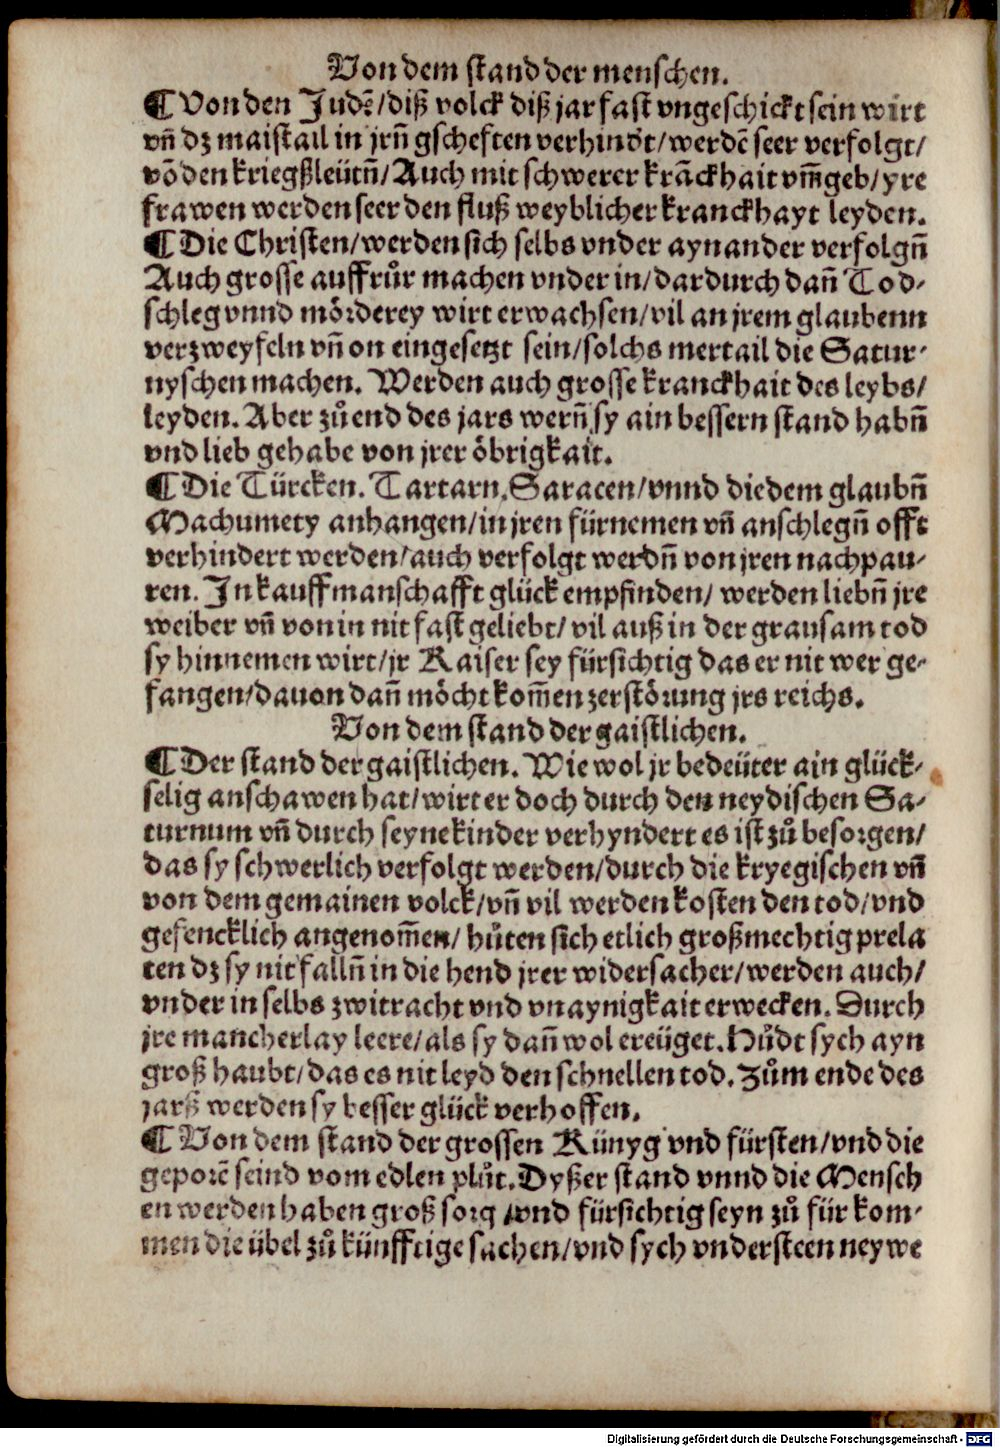 Von dem stand der menschen.
¶ Von den Judē/diß volck diß jar fast vngeschickt sein wirt
vñ dz maistail in jrñ gscheften verhindt/werdē seer verfolgt/
võ den kriegßleütñ/Auch mit schwerer krāckhait vm̄geb/yre
frawen werden seer den fluß weyblicher kranckhayt leyden.
¶ Die Christen/werden sich selbs vnder aynander verfolgñ
Auch grosse auffrůr machen vnder in/dardurch dañ Tod-
schleg vnnd mörderey wirt erwachsen/vil an jrem glaubenn
verzweyfeln vñ on eingesetzt sein/solchs mertail die Satur-
nyschen machen. Werden auch grosse kranckhait des leybs/
leyden. Aber zů end des jars werñ sy ain bessern stand habñ
vnd lieb gehabe von jrer öbrigkait.
¶ Die Türcken. Tartarn. Saracen/vnnd die dem glaubñ
Machumety anhangen/in jren fürnemen vñ anschlegñ offt
verhindert werden/auch verfolgt werdñ von jren nachpau-
ren. In kauffmanschafft glück empfinden/ werden liebñ jre
weiber vñ von in nit fast geliebt/ vil auß in der grausam tod
sy hinnemen wirt/jr Kaiser sey fürsichtig das er nit wer ge-
fangen/dauon dañ möcht kom̄en zerstörung jrs reichs.
Von dem stand der gaistlichen.
¶ Der stand der gaistlichen. Wie wol jr bedeüter ain glück-
selig anschawen hat/wirt er doch durch den neydischen Sa-
turnum vñ durch seyne kinder verhyndert es ist zů besorgen/
das sy schwerlich verfolgt werden/durch die kryegischen vñ
von dem gemainen volck/vñ vil werden kosten den tod/vnd
gefencklich angenom̄en/ hůten sich etlich großmechtig prela
ten dz sy nit fallñ in die hend jrer widersacher/werden auch/
vnder in selbs zwitracht vnd vnaynigkait erwecken. Durch
jre mancherlay leere/als sy dañ wol ereüget. Hůdt sych ayn
groß haubt/das es nit leyd den schnellen tod. Zům ende des
jarß werden sy besser glück verhoffen.
¶ Von dem stand der grossen Künyg vnd fürsten/vnd die
geporē seind vom edlen plůt. Dyßer stand vnnd die Mensch
en werden haben groß sorg /vnd fürsichtig seyn zů für kom-
men die übel zů künfftige sachen/vnd sych vndersteen neywe
Digitalisierung gefördert durch die Deutsche Forschungsgemeinschaft - DFG